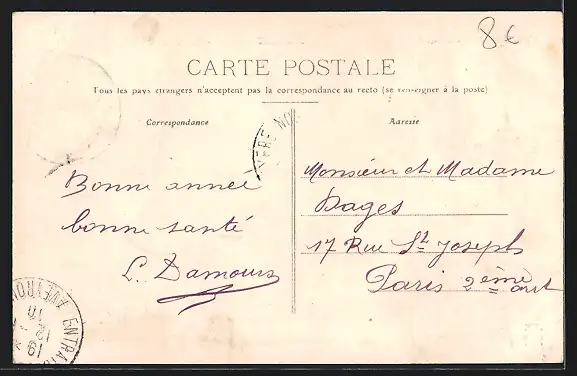 8€
CARTE POSTALE
Tous les pays étrangers n'acceptent pas la correspondance au recto (se renseigner à la poste)
Correspondance
Adresse
Bonne année
bonne santé
L. Damours
Monsieur et Madame
Dages
17 Rue St Joseph
Paris 2ème arrt
AVEYRON